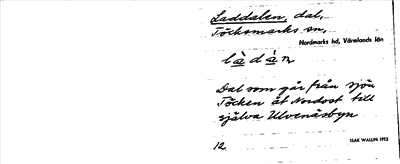 Laddalen, dal,
Töcksmarks sn,
Nordmarks hd, Värmlands län
là dà n
Dal som går från sjön
Töcken åt Nordost till
själva Ulvenäsbyn
12.
ISAK WALLIN 1912